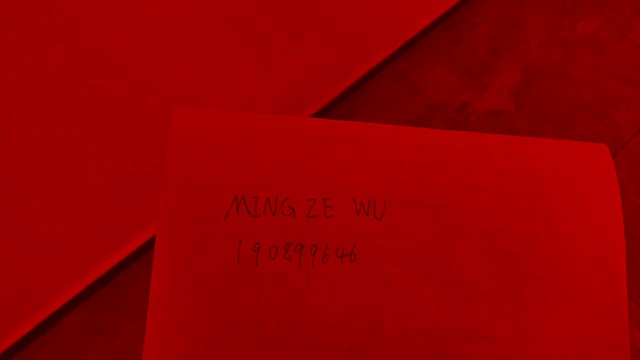 MING ZE WU
190899646